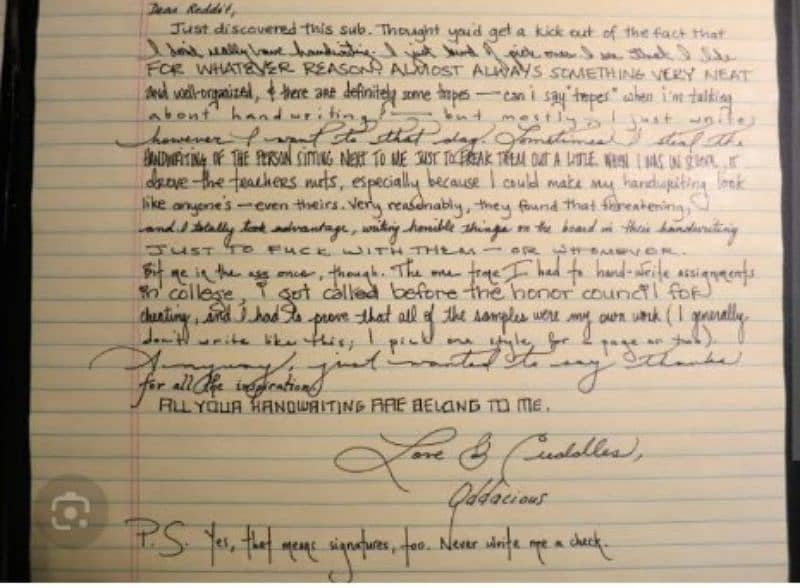 Dear Reddit,
Just discovered this sub. Thought you'd get a kick out of the fact that
I don't really have handwriting. I just kind of pick ones I see that I like
FOR WHATEVER REASON. ALMOST ALWAYS SOMETHING VERY NEAT
and well-organized, & there are definitely some tropes — can i say "tropes" when i'm talking
about handwriting? — but mostly, I just write
however I want to that day. Sometimes I steal the
HANDWRITING OF THE PERSON SITTING NEXT TO ME JUST TO FREAK THEM OUT A LITTLE. WHEN I WAS IN IT
drove the teachers nuts, especially because I could make my handwriting look
like anyone's — even theirs. Very reasonably, they found that threatening,
and I totally took advantage, writing horrible things on the board in their handwriting
JUST TO FUCK WITH THEM — OR WHOMEVER.
Bit me in the ass once, though. The one time I had to hand-write assignments
in college, i got called before the honor council for
cheating, and I had to prove that all of the samples were my own work (I generally
don't write like this; I pick one style for a page or two).
Anyway, just wanted to say thanks
for all the inspiration.
ALL YOUR HANDWRITING ARE BELONG TO ME.
Love & Cuddles,
Oddacious
P.S. Yes, that means signatures, too. Never write me a check.